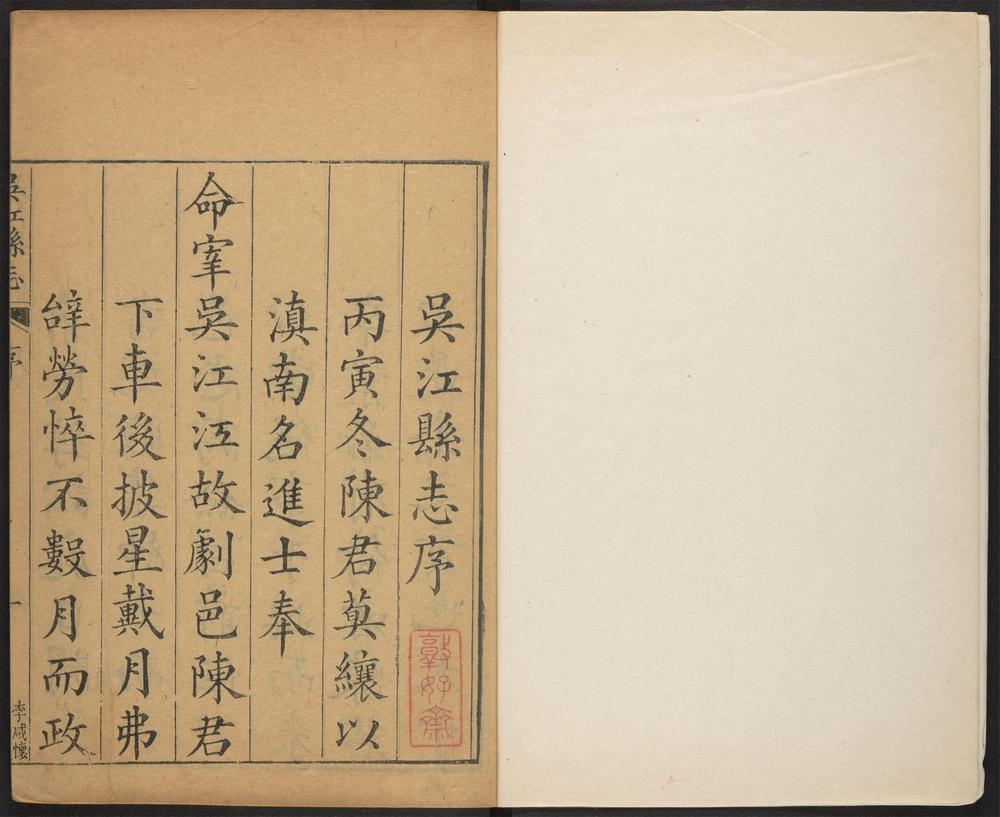 吳江縣志序
丙寅冬陳君莫纕以
滇南名進士奉
命宰吳江江故劇邑陳君
下車後披星戴月弗
辝勞悴不數月而政
吳江縣志
序
一
李咸懷
好齋